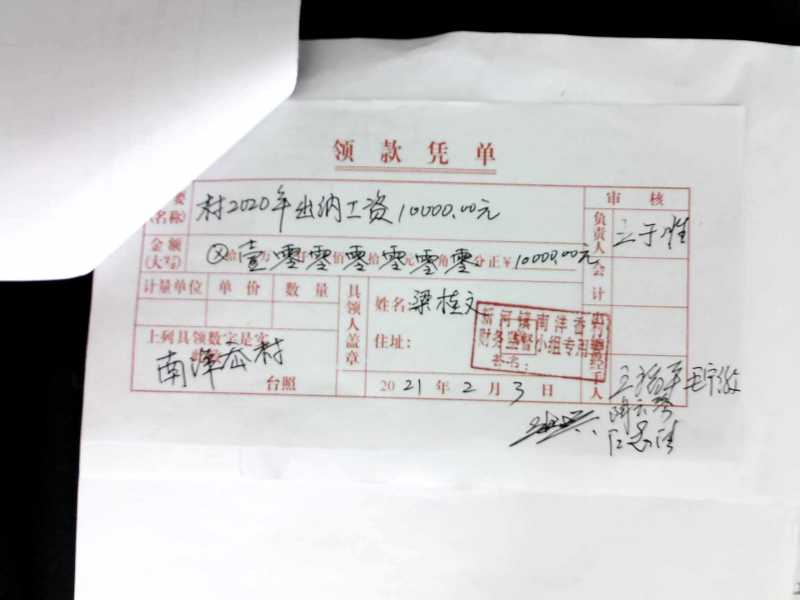 领款凭单
要 村2020年出纳工资10000.00元 审核
(名称) 负责人
金额 ⊗拾壹万零仟零佰零拾零元零角零分正¥10000.00元
(大写) 会计
计量单位 单价 数量 具领人盖章 姓名:梁桂文
住址:
新河镇南洋岙村
财务监督小组专用
签名:
上列具领数字是实
南洋岙村
台照 2021年2月3日
经手人